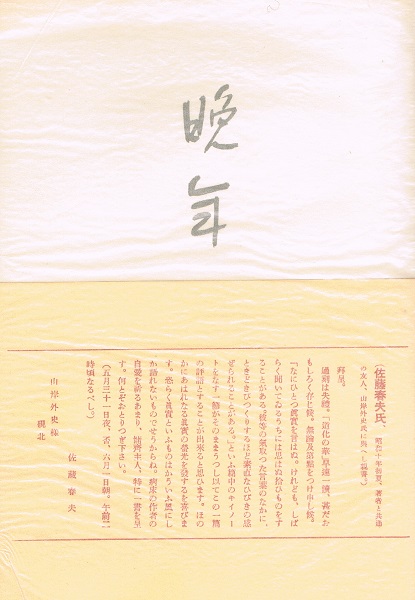 晩年
(佐藤春夫氏、昭和十年初夏。著者と共通
の友人、山岸外史氏に與へし親書。)
拜呈。
過刻は失禮。「道化の華」早速一讀、甚だお
もしろく存じ候。無論及第點をつけ申し候。
「なにひとつ眞實を言はぬ。けれども、しば
らく聞いてゐるうちには思はぬ拾ひものをす
ることがある。彼等の氣取つた言葉のなかに、
ときどきびつくりするほど素直なひびきの感
ぜられることがある。」といふ篇中のキイノー
トをなす一節がそのままうつし以てこの一篇
の評語とすることが出來ると思ひます。ほの
かにあはれなる眞實の螢光を發するを喜びま
す。恐らく眞實といふものはかういふ風にし
か語れないものでせうからね。病床の作者の
自愛を祈るあまり、慵齋主人、特に一書を呈
す。何とぞおとりつぎ下さい。
(五月三十一日夜、否、六月一日朝、午前二
時頃なるべし。)
佐藤春夫
山岸外史樣
硯北